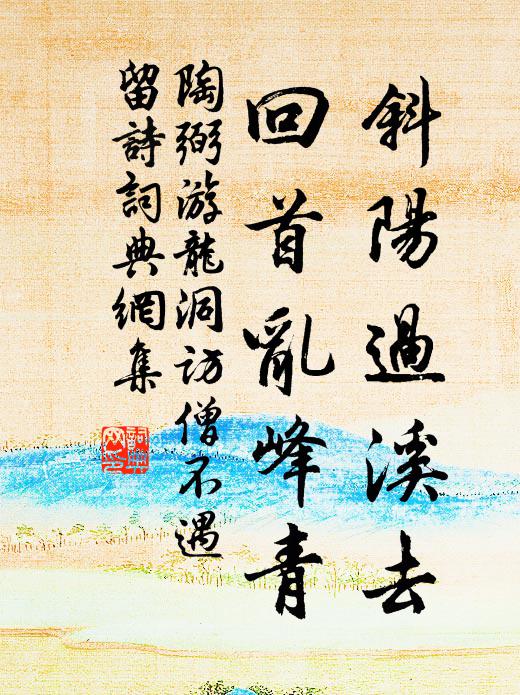 斜陽過溪去
回首亂峰青
陶弼游龍洞訪僧不遇
留詩詞典網集